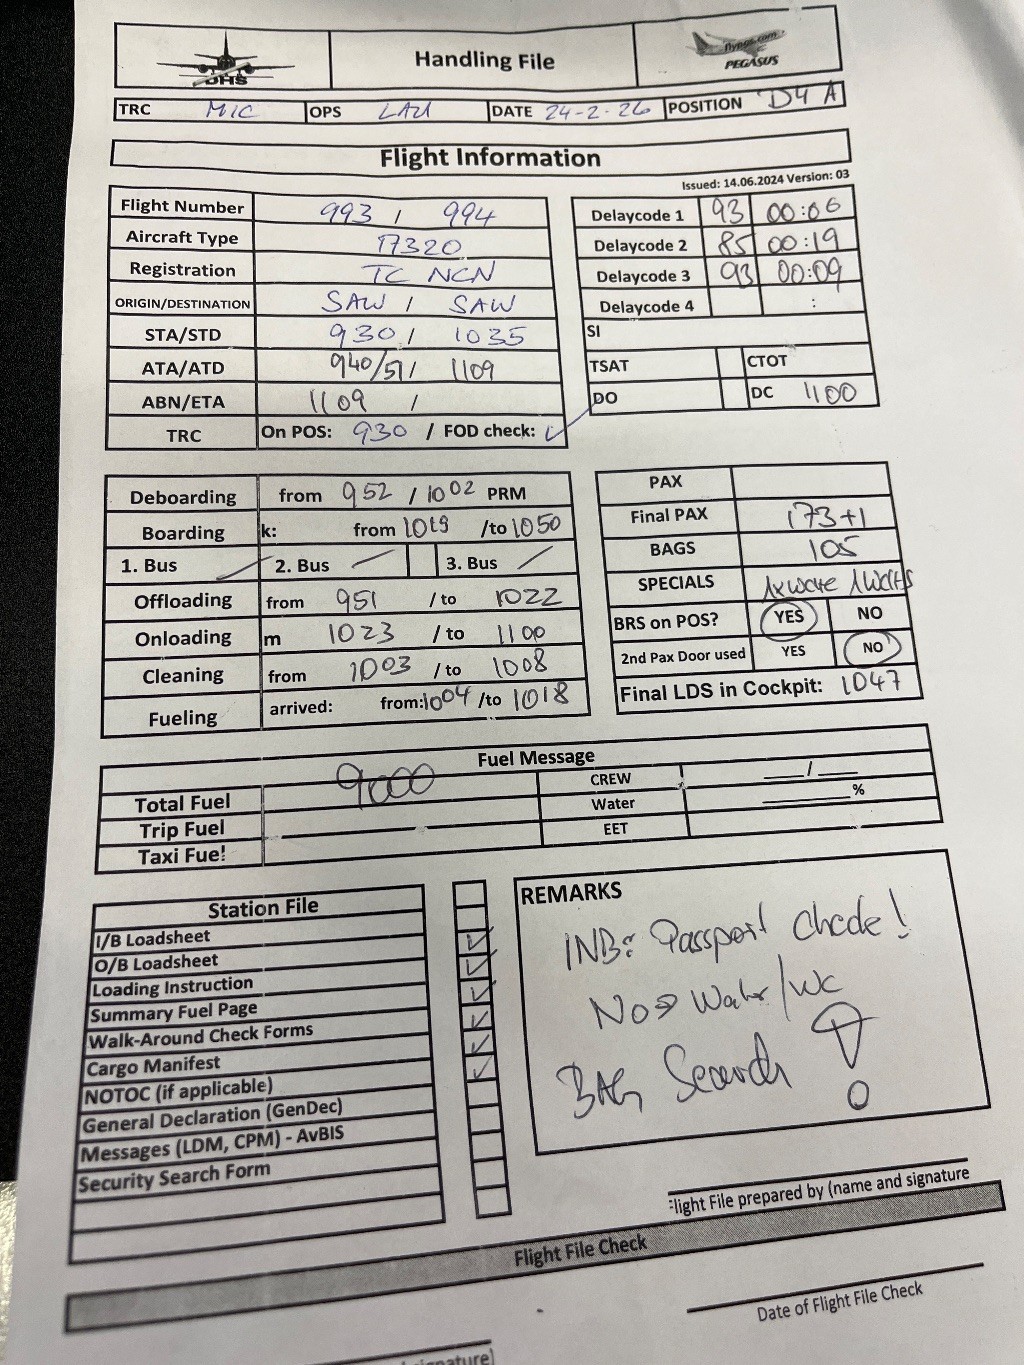 DHS
Handling File
flypgs.com
PEGASUS
TRC MIC OPS LAU DATE 24-2-26 POSITION D4 A
Flight Information
Issued: 14.06.2024 Version: 03
Flight Number 993 / 994
Aircraft Type
Registration TC NCN
ORIGIN/DESTINATION SAW / SAW
STA/STD 930 / 1035
ATA/ATD 940/51 / 1109
ABN/ETA 1109 /
TRC On POS: 930 / FOD check: ✓
Delaycode 1 93 00:06
Delaycode 2 85 00:19
Delaycode 3 93 00:09
Delaycode 4 :
SI
TSAT CTOT
DO DC 1100
Deboarding from 952 / 1002 PRM
Boarding k: from 1019 /to 1050
1. Bus 2. Bus 3. Bus
Offloading from 951 / to 1022
Onloading m 1023 / to 1100
Cleaning from 1003 / to 1008
Fueling arrived: from:1004 /to 1018
PAX
Final PAX 173+1
BAGS 105
SPECIALS
BRS on POS? YES NO
2nd Pax Door used YES NO
Final LDS in Cockpit: 1047
Fuel Message
Total Fuel 9000 CREW __/__
Trip Fuel Water ____%
Taxi Fue! EET
Station File
I/B Loadsheet
O/B Loadsheet ✓
Loading Instruction ✓
Summary Fuel Page ✓
Walk-Around Check Forms ✓
Cargo Manifest ✓
NOTOC (if applicable) ✓
General Declaration (GenDec)
Messages (LDM, CPM) - AvBIS
Security Search Form
REMARKS
INB: Passport Chcde!
No Water/WC
BAG Search !
Flight File prepared by (name and signature
Flight File Check
Date of Flight File Check